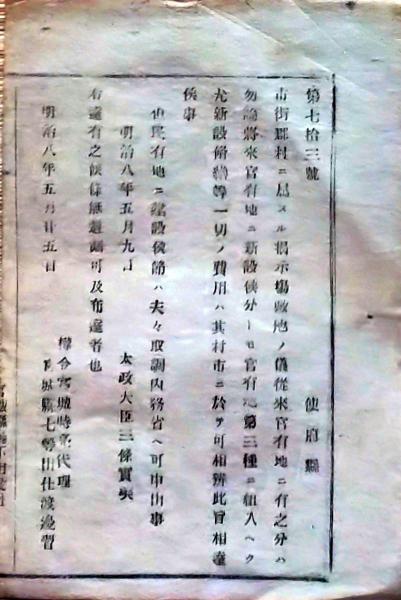 第七拾三號
使府縣
市街郡村ニ屬スル揭示塲敷地ノ儀從來官有地ニ有之分ハ
勿論將來官有地ニ新設候分トモ官有地第三種ニ組入ヘク
尤新設修繕等一切ノ費用ハ其村市ニ於テ可相辨此旨相達
候事
但民有地ニ建設候節ハ夫々取調內務省ヘ可申出事
明治八年五月九日
太政大臣三條實美
右達有之候條無遺漏可及布達者也
明治八年五月廿五日
權令宮城時亮代理
宮城縣七等出仕渡邊習